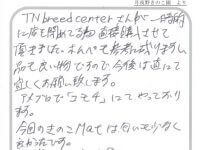 月夜野きのこ園 より
TN breed center さんが一時的
に店を閉める為 直接購入させて
頂きました。オスペも参考に成りますし
品も良い物ですので今後は直にて
宜しくお願い致します。
アメブロで「コモチ」にて やっており
ます。
今回のきのこMatは匂いも少なく
良かったです。